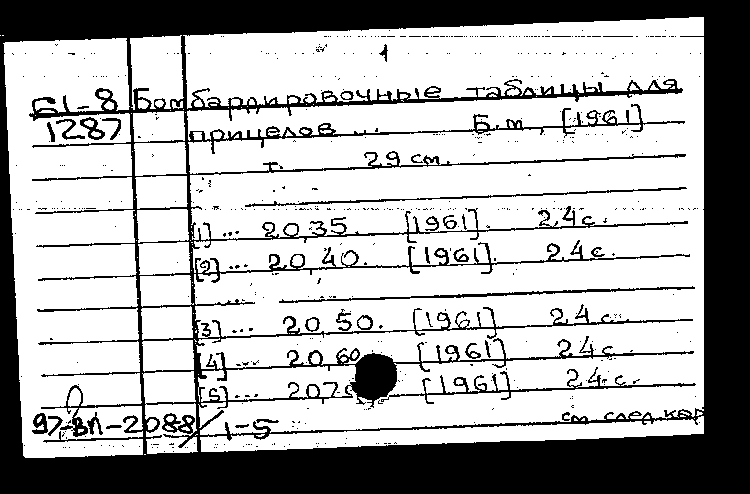 1
61-8 Бомбардировочные таблицы для
1287 прицелов ... Б.м., [1961]
т. 29 см.
[1] ... 20,35. [1961]. 24 с.
[2] ... 20,40. [1961]. 24 с.
[3] ... 20,50. [1961] 24 с.
[4] ... 20,60 [1961] 24 с.
[5] ... [1961] 24 с.
97-ВП-2088/1-5 см след. кар